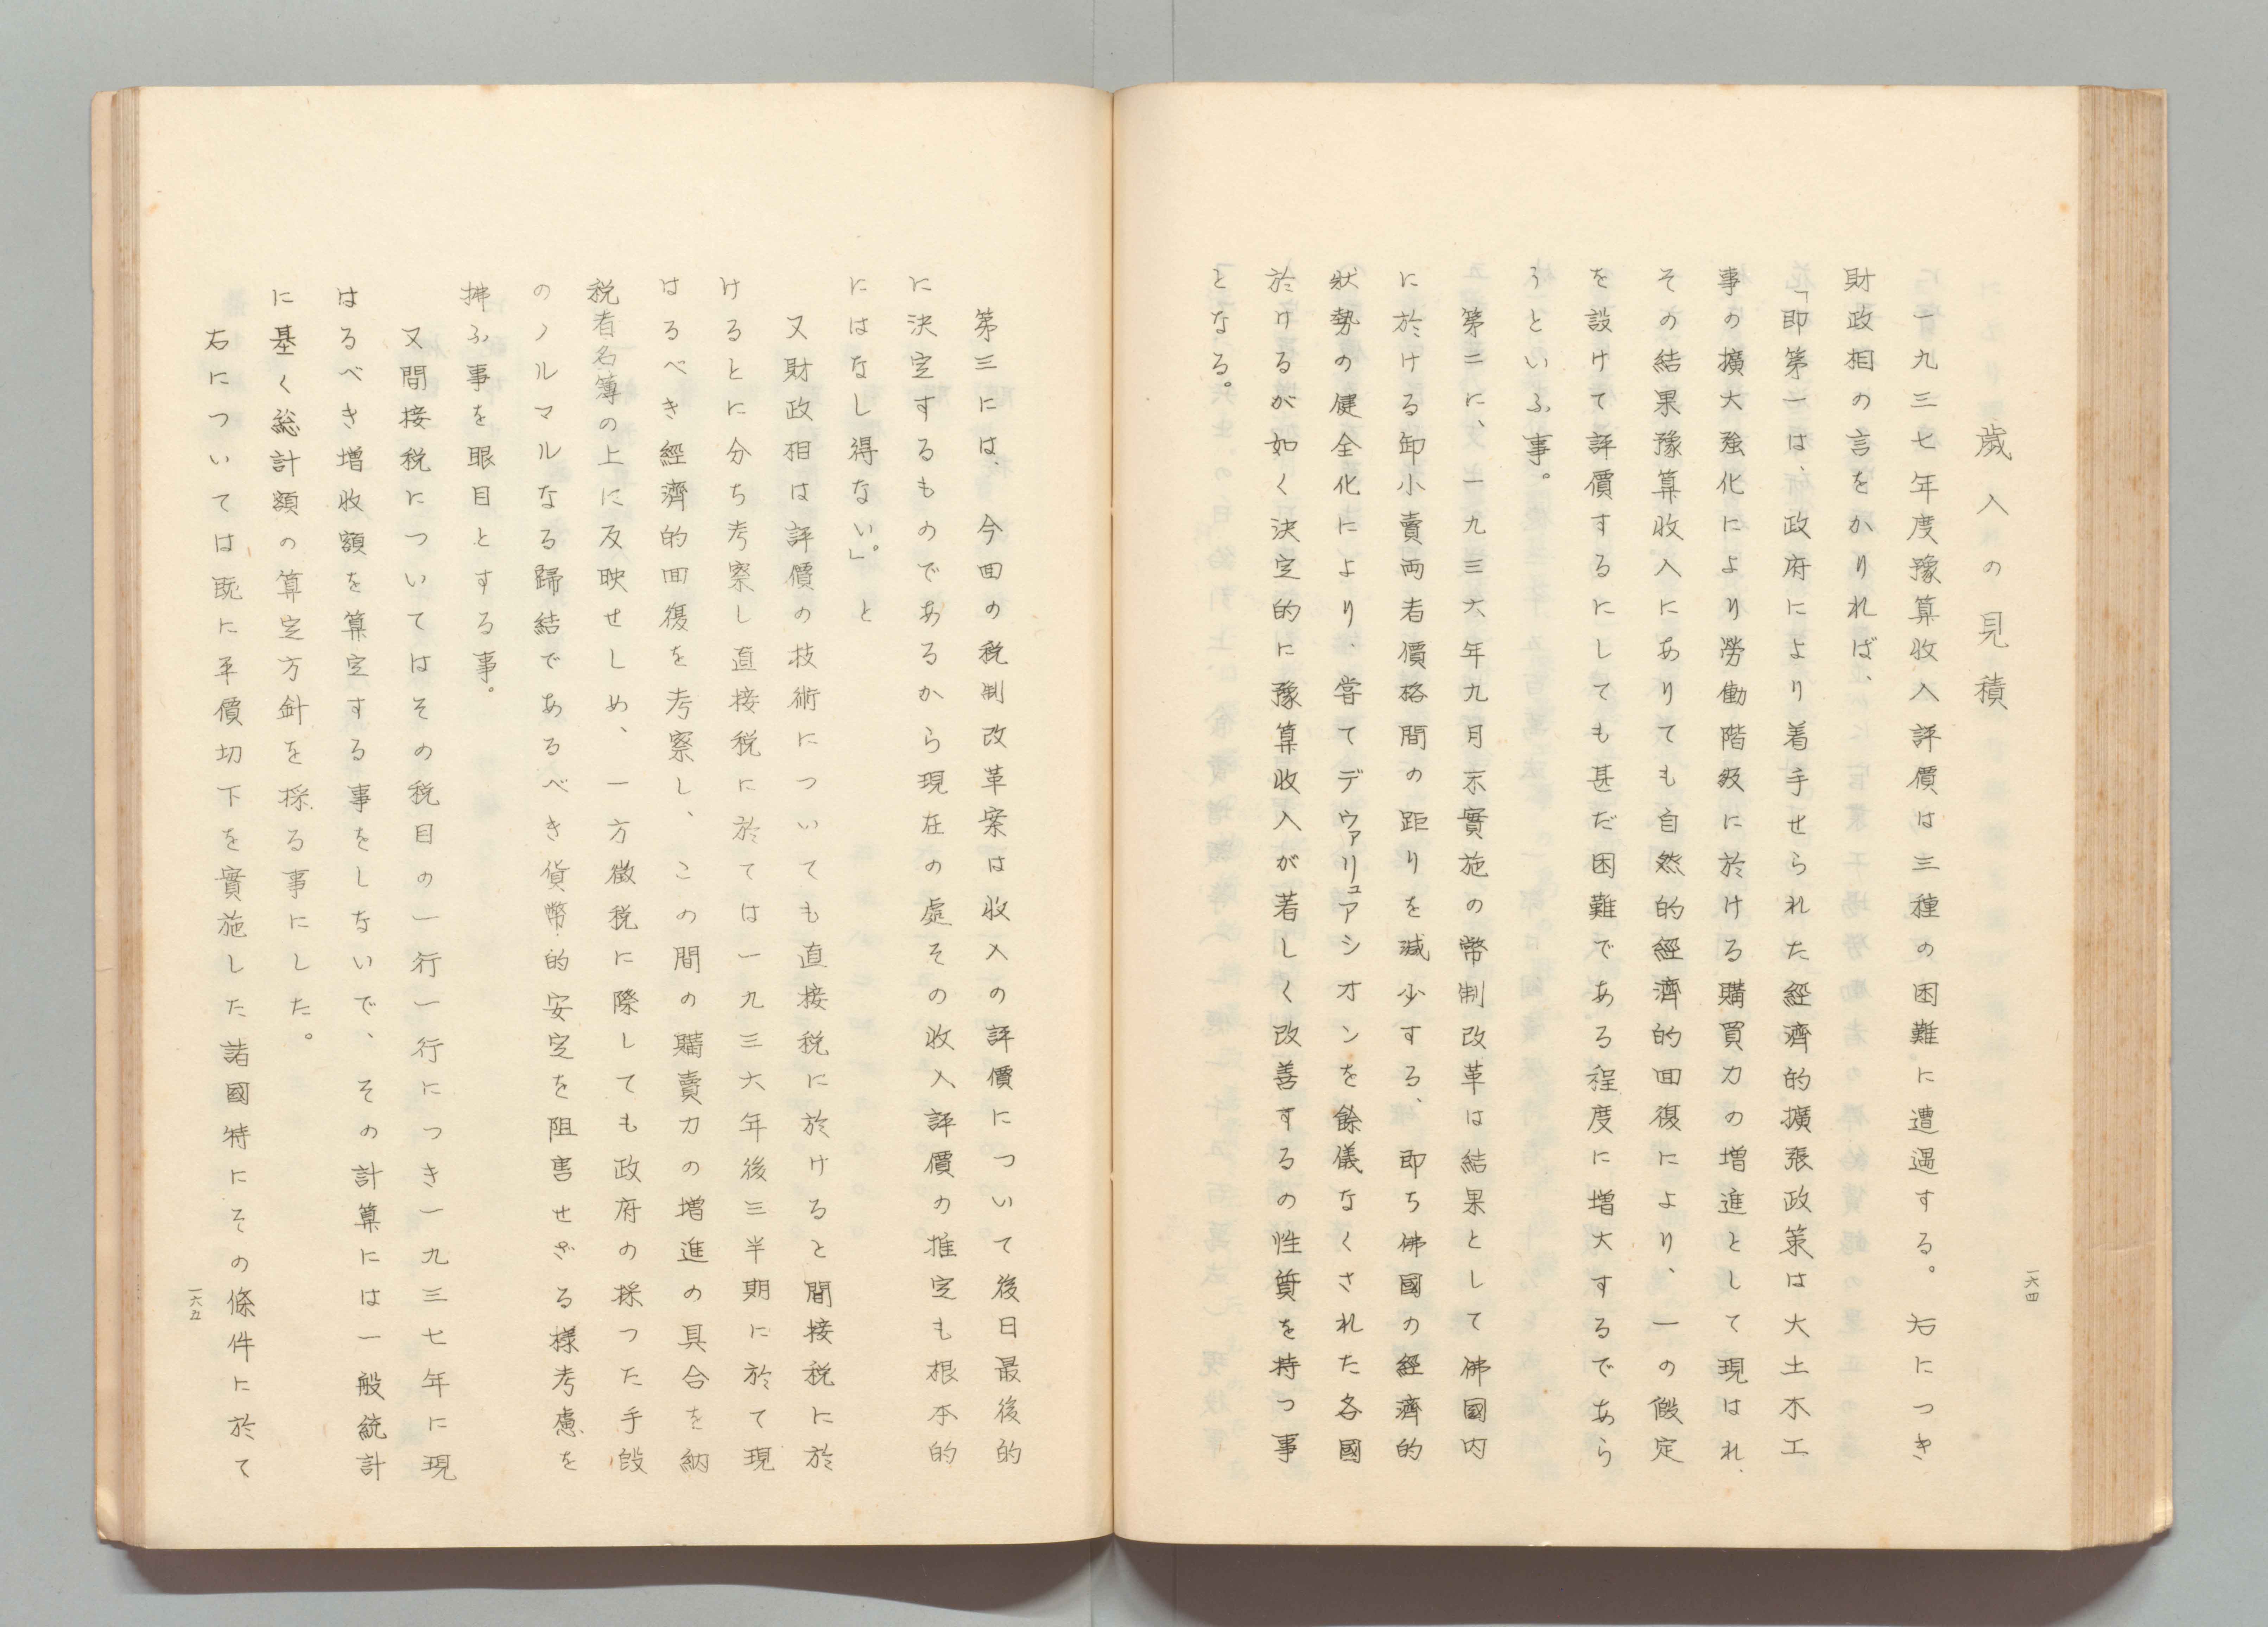 一六四
歲入の見積
一九三七年度豫算收入評價は三種の困難に遭遇する。右につき
財政相の言をかりれば、
「即第一は、政府により着手せられた經濟的擴張政策は大土木工
事の擴大强化により勞働階級に於ける購買力の增進として現はれ、
その結果豫算收入にありても自然的經濟的回復により、一の假定
を設けて評價するにしても甚だ困難である程度に增大するであら
うといふ事。
第二に、一九三六年九月末實施の幣制改革は結果として佛國內
に於ける卸小賣両者價格間の距りを減少する、即ち佛國の經濟的
狀勢の健全化により、嘗てデヴァリュアシオンを餘儀なくされた各國
於けるが如く決定的に豫算收入が若しく改善するの性質を持つ事
となる。
第三には、今回の税制改革案は收入の評價について後日最後的
に決定するものであるから現在の處その收入評價の推定も根本的
にはなし得ない。」と
又財政相は評價の技術についても直接税に於けると間接税に於
けるとに分ち考察し直接税に於ては一九三六年後三半期に於て現
はるべき經濟的回復を考察し、この間の購賣力の增進の具合を納
税者名簿の上に反映せしめ、一方徵税に際しても政府の採つた手段
のノルマルなる歸結であるべき貨幣的安定を阻害せざる樣考慮を
拂ふ事を眼目とする事。
又間接税についてはその税目の一行一行につき一九三七年に現
はるべき增收額を算定する事をしないで、その計算には一般統計
に基く総計額の算定方針を採る事にした。
右については既に平價切下を實施した諸國特にその條件に於て
一六五